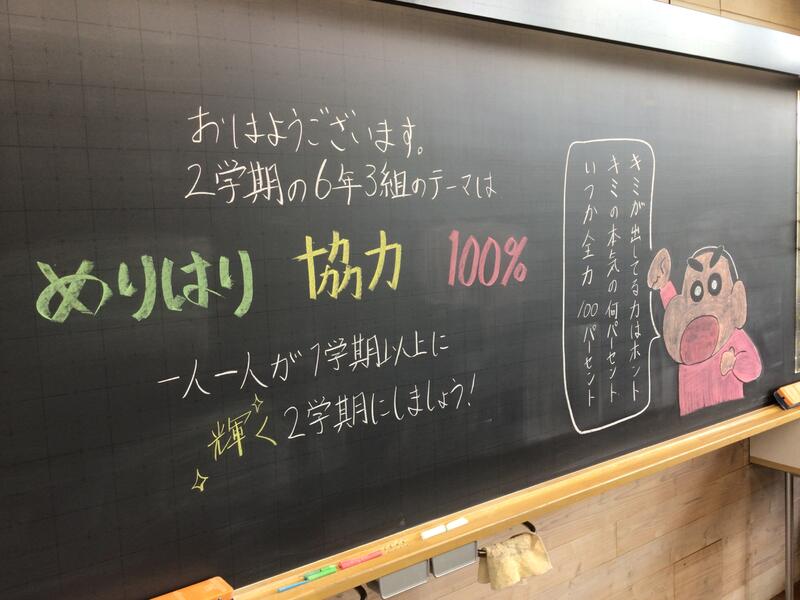 おはようございます。
2学期の6年3組のテーマは
めりはり 協力 100%
一人一人が1学期以上に
輝く2学期にしましょう!
キミが出してる力はホント
キミの本気の何パーセント
いつか全力100パーセント